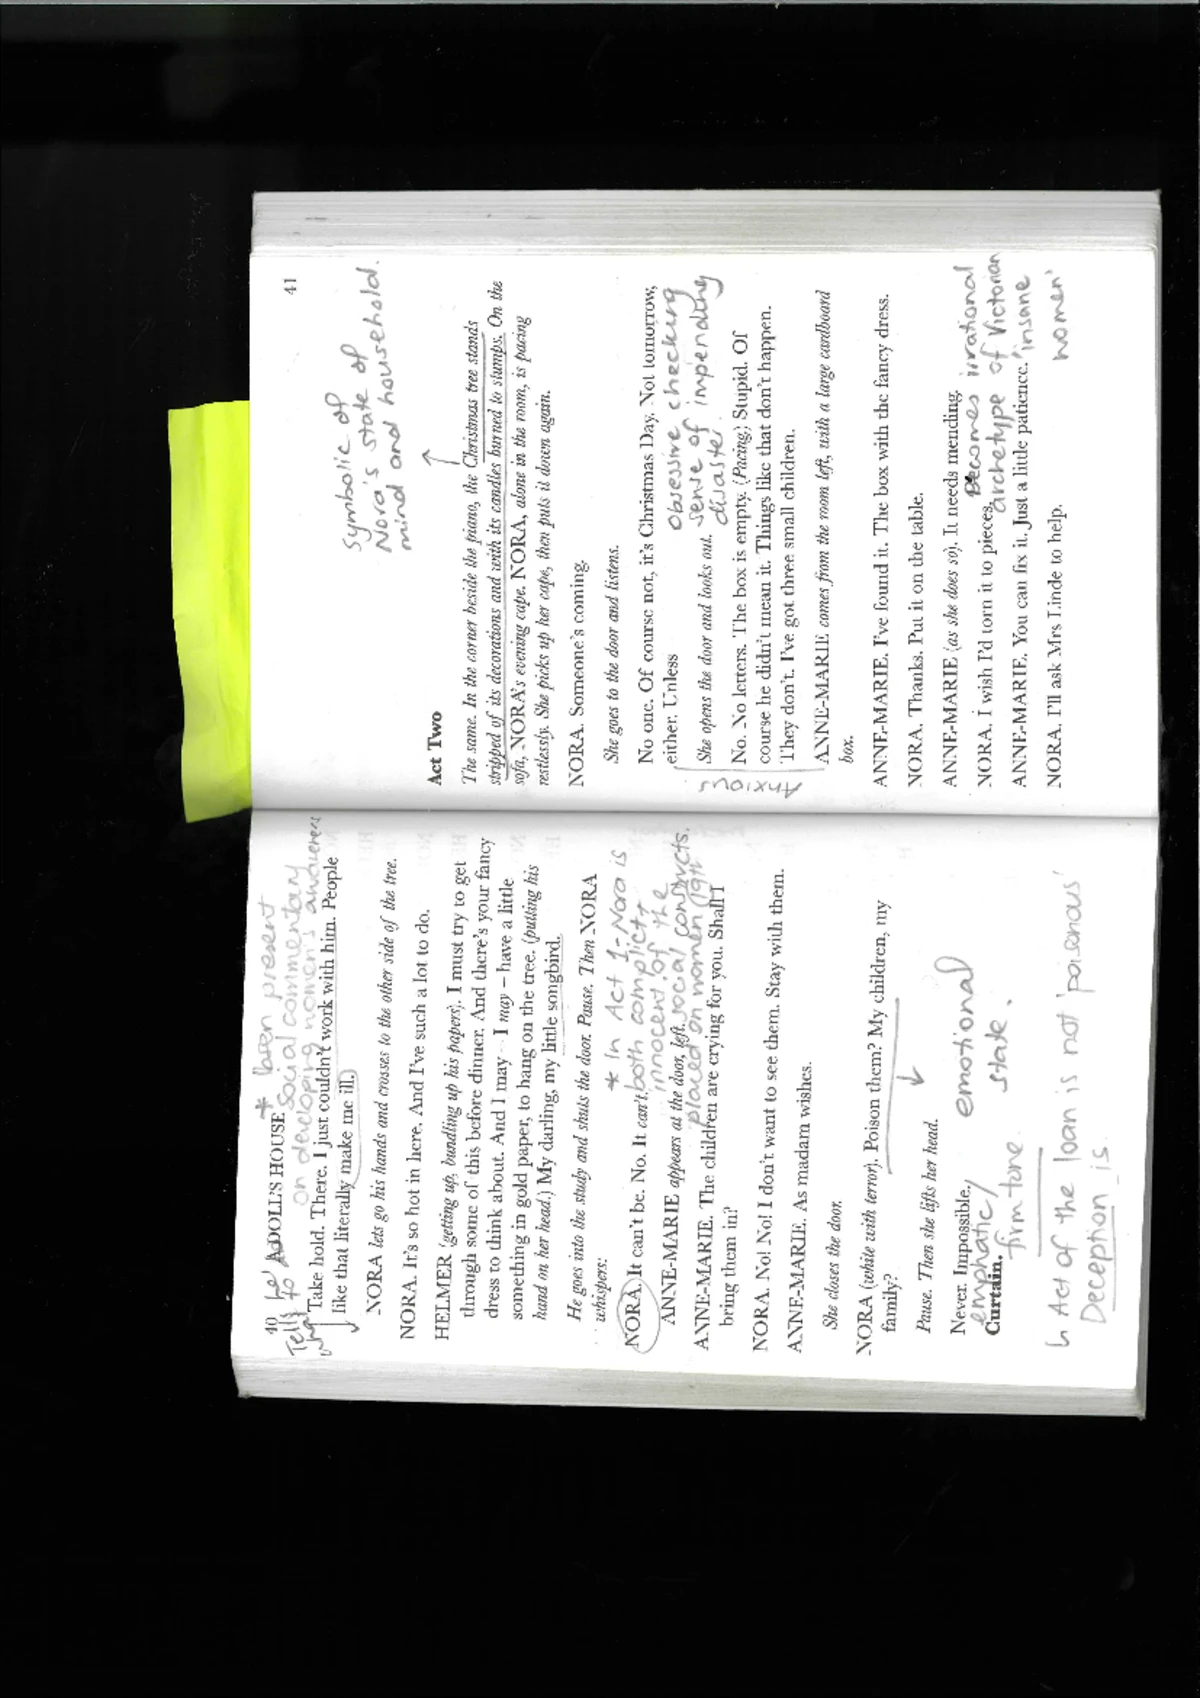 40 A DOLL'S HOUSE
* been present
social commentary
on developing women's awareness
Take hold. There. I just couldn't work with him. People
like that literally make me ill.
NORA lets go his hands and crosses to the other side of the tree.
NORA. It's so hot in here. And I've such a lot to do.
HELMER (getting up, bundling up his papers). I must try to get
through some of this before dinner. And there's your fancy
dress to think about. And I may – I may – have a little
something in gold paper, to hang on the tree. (putting his
hand on her head.) My darling, my little songbird.
He goes into the study and shuts the door. Pause. Then NORA
whispers:
NORA. It can't be. No. It can't.
* In Act 1 - Nora is
both complicit +
innocent of the
social constructs
placed on women (19th
ANNE-MARIE appears at the door, left.
ANNE-MARIE. The children are crying for you. Shall I
bring them in?
NORA. No! No! I don't want to see them. Stay with them.
ANNE-MARIE. As madam wishes.
She closes the door.
NORA (white with terror). Poison them? My children, my
family?
Pause. Then she lifts her head.
Never. Impossible.
emotional
state.
emphatic/
firm tone
Curtain.
↳ Act of the loan is not 'poisonous'
Deception is.
41
symbolic of
Nora's state of
mind and household.
Act Two
The same. In the corner beside the piano, the Christmas tree stands
stripped of its decorations and with its candles burned to stumps. On the
sofa, NORA's evening cape. NORA, alone in the room, is pacing
restlessly. She picks up her cape, then puts it down again.
NORA. Someone's coming.
She goes to the door and listens.
No one. Of course not, it's Christmas Day. Not tomorrow,
either. Unless
obsessive checking
sense of impending
disaster
She opens the door and looks out.
No. No letters. The box is empty. (Pacing.) Stupid. Of
course he didn't mean it. Things like that don't happen.
They don't. I've got three small children.
ANNE-MARIE comes from the room left, with a large cardboard
box.
ANNE-MARIE. I've found it. The box with the fancy dress.
NORA. Thanks. Put it on the table.
ANNE-MARIE (as she does so). It needs mending.
NORA. I wish I'd torn it to pieces.
Becomes irrational
archetype of Victorian
'insane
women'
ANNE-MARIE. You can fix it. Just a little patience.
NORA. I'll ask Mrs Linde to help.